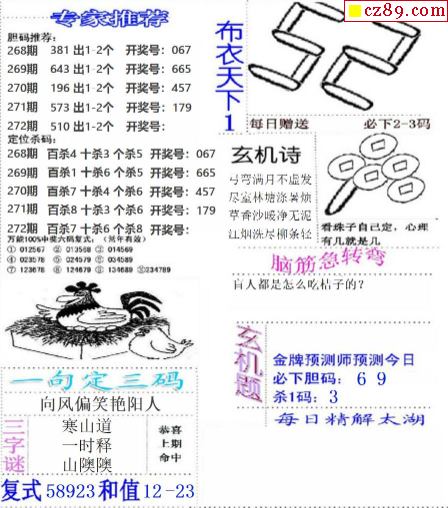 cz89.com
专家推荐
胆码推荐:
268期 381 出1-2个 开奖号: 067
269期 643 出1-2个 开奖号: 665
270期 196 出1-2个 开奖号: 457
271期 573 出1-2个 开奖号: 179
272期 510 出1-2个 开奖号:
定位杀码:
268期 百杀4 十杀3 个杀5 开奖号: 067
269期 百杀1 十杀6 个杀5 开奖号: 665
270期 百杀7 十杀6 个杀4 开奖号: 457
271期 百杀8 十杀3 个杀6 开奖号: 179
272期 百杀7 十杀6 个杀8 开奖号:
万能100%中奖六码复式: (常年有效)
① 012567 ② 013568 ③ 014569
④ 023578 ⑤ 024579 ⑥ 034589
⑦ 123678 ⑧ 124679 ⑨ 134689 ⑩234789
一句定三码
向风偏笑艳阳人
三字谜
寒山道
一时释
山隩隩
恭喜
上期
命中
复式 58923 和值 12-23
布衣天下1
每日赠送 必下2-3码
玄机诗
弓弯满月不虚发
尽室林塘涤暑烦
草香沙暖净无泥
江烟洗尽柳条轻
看珠子自己定，心理
有几就是几
脑筋急转弯
盲人都是怎么吃桔子的？
玄机题
金牌预测师预测今日
必下胆码: 6 9
杀1码: 3
每日精解太湖